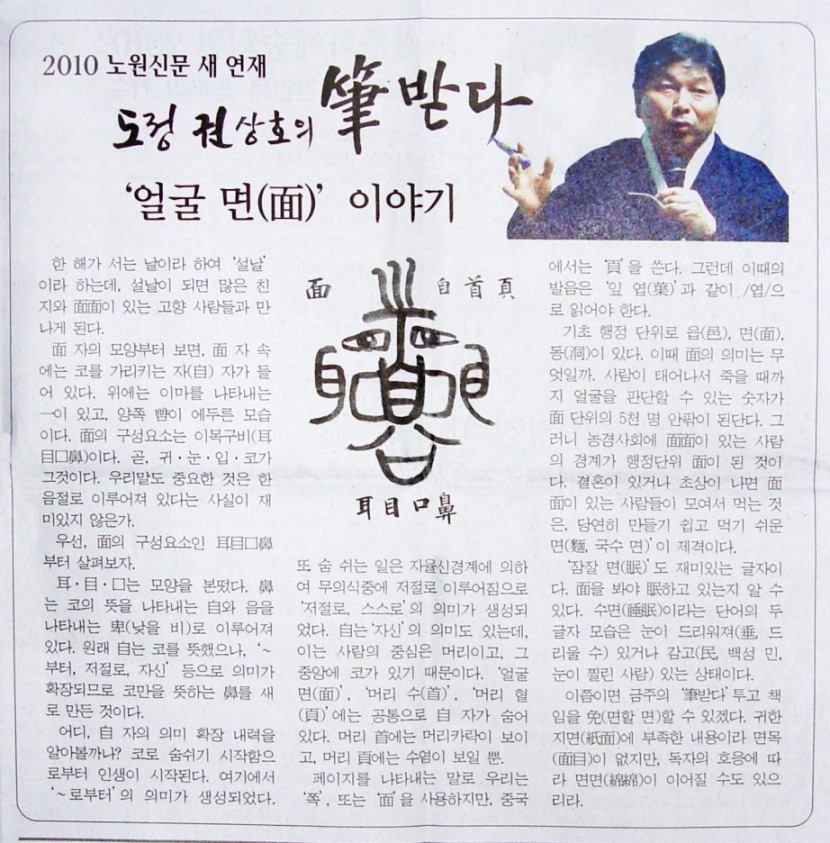 2010 노원신문 새 연재
도정 권상호의 筆받다
'얼굴 면(面)' 이야기
한 해가 서는 날이라 하여 '설날'
이라 하는데, 설날이 되면 많은 친
지와 面面이 있는 고향 사람들과 만
나게 된다.
面 자의 모양부터 보면, 面 자 속
에는 코를 가리키는 자(自) 자가 들
어 있다. 위에는 이마를 나타내는
一이 있고, 양쪽 뺨이 에두른 모습
이다. 面의 구성요소는 이목구비(耳
目口鼻)이다. 곧, 귀·눈·입·코가
그것이다. 우리말도 중요한 것은 한
음절로 이루어져 있다는 사실이 재
미있지 않은가.
우선, 面의 구성요소인 耳目口鼻
부터 살펴보자.
耳·目·口는 모양을 본떴다. 鼻
는 코의 뜻을 나타내는 自와 음을
나타내는 卑(낮을 비)로 이루어져
있다. 원래 自는 코를 뜻했으나, '~
부터, 저절로, 자신' 등으로 의미가
확장되므로 코만을 뜻하는 鼻를 새
로 만든 것이다.
어디, 自 자의 의미 확장 내력을
알아볼까나? 코로 숨쉬기 시작함으
로부터 인생이 시작된다. 여기에서
'~로부터'의 의미가 생성되었다.
面 自首頁
耳目口鼻
또 숨 쉬는 일은 자율신경계에 의하
여 무의식중에 저절로 이루어짐으로
'저절로, 스스로'의 의미가 생성되
었다. 自는 '자신'의 의미도 있는데,
이는 사람의 중심은 머리이고, 그
중앙에 코가 있기 때문이다. '얼굴
면(面)', '머리 수(首)', '머리 혈
(頁)'에는 공통으로 自 자가 숨어
있다. 머리 首에는 머리카락이 보이
고, 머리 頁에는 수염이 보일 뿐.
페이지를 나타내는 말로 우리는
'쪽', 또는 '面'을 사용하지만, 중국
에서는 '頁'을 쓴다. 그런데 이때의
발음은 '잎 엽(葉)'과 같이 /엽/으
로 읽어야 한다.
기초 행정 단위로 읍(邑), 면(面),
동(洞)이 있다. 이때 面의 의미는 무
엇일까. 사람이 태어나서 죽을 때까
지 얼굴을 판단할 수 있는 숫자가
面 단위의 5천 명 안팎이 된단다. 그
러니 농경사회에 面面이 있는 사람
의 경계가 행정단위 面이 된 것이
다. 결혼이 있거나 초상이 나면 面
面이 있는 사람들이 모여서 먹는 것
은, 당연히 만들기 쉽고 먹기 쉬운
면(麵, 국수 면)'이 제격이다.
'잠잘 면(眠)'도 재미있는 글자이
다. 面을 봐야 眠하고 있는지 알 수
있다. 수면(睡眠)이라는 단어의 두
글자 모습은 눈이 드리워져(垂, 드
리울 수) 있거나 감고(民, 백성 민,
눈이 찔린 사람) 있는 상태이다.
이쯤이면 금주의 '筆받다' 투고 책
임을 免(면할 면)할 수 있겠다. 귀한
지면(紙面)에 부족한 내용이라 면목
(面目)이 없지만, 독자의 호응에 따
라 면면(綿綿)이 이어질 수도 있으
리라.